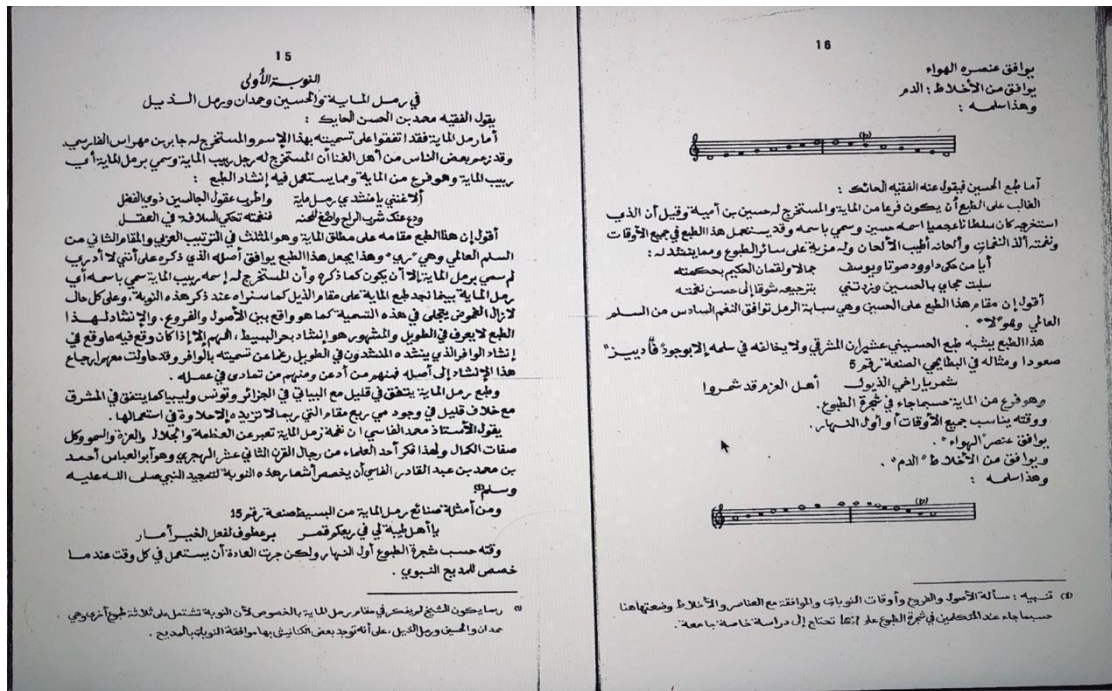 15
النوبة الأولى
في رمل الماية والحسين وحمدان ورمل الذيل
يقول الفقيه محمد بن الحسن الحايك :
أما رمل الماية فقد اتفقوا على تسميته بهذا الإسم والمستخرج له جابر بن مهراس الفارسي.
وقد زعم بعض الناس من أهل الغنا أن المستخرج له رجل ربيب الماية وسمي برمل الماية أي
ربيب الماية وهو فرع من الماية ومما يستعمل فيه إنشاد الطبع :
ألا غنني يا منشدي رمل ماية واطرب عقول الجالسين ذوي الفضل
ودع عنك شرب الراح واصغ للحنه فنغمته تحكي السلافة في العقل
أقول إن هذا الطبع مقامه على مطلق الماية وهو المثلث في الترتيب العربي والمقام الثاني من
السلم العالمي وهي "ري" وهذا يجعل هذا الطبع يوافق أصله الذي ذكره على أنني لا أدري
لم سمي برمل الماية إلا أن يكون كما ذكره وأن المستخرج له إسمه ربيب الماية سمي باسمه أي
رمل الماية بينما نجد طبع الماية على مقام الذيل كما سنراه عند ذكر هذه النوبة، وعلى كل حال
لا زال الغموض يتجلى في هذه التسمية كما هو واقع بين الأصول والفروع. والإنشاد لهذا
الطبع لا يعرف في الطويل والمشهور هو إنشاد بحر البسيط، اللهم إلا إذا كان وقع فيه ما وقع في
إنشاد الوافر الذي ينشده المنشدون في الطويل رغما عن تسميته بالوافر وقد حاولت معهم إرجاع
هذا الإنشاد إلى أصله فمنهم من أذعن ومنهم من تمادى في عمله.
وطبع رمل الماية يتفق في قليل مع البياتي في الجزائر وتونس وليبيا كما يتفق في المشرق
مع خلاف قليل في وجود مي ربع مقام التي ربما لا تزيده إلا حلاوة في استعمالها.
يقول الأستاذ محمد الفاسي ان نغمة رمل الماية تعبر عن العظمة والجلال والعزة والسمو وكل
صفات الكمال ولهذا فكر أحد العلماء من رجال القرن الثاني عشر الهجري وهو أبو العباس أحمد
بن محمد بن عبد القادر الفاسي أن يخصص أشعار هذه النوبة لتمجيد النبي صلى الله عليه
وسلم (1)
ومن أمثلة صنائع رمل الماية من البسيط صنعة رقم 15
يا أهل طيبة لي في ربعكم قمر بر عطوف لفعل الخير أمار
وقته حسب شجرة الطبوع أول النهار ولكن جرت العادة أن يستعمل في كل وقت عند ما
خصص للمديح النبوي .
(1) ربما يكون الشيخ لم يفكر في مقام رمل الماية بالخصوص لأن النوبة تشتمل على ثلاثة طبوع أخرى وهي
حمدان والحسين ورمل الذيل، على أنه توجد بعض الكنانيش بها موافقة النوبات بالمديح .
16
يوافق عنصره الهواء
يوافق من الأخلاط : الدم
وهذا سلمه :
(b)
أما طبع الحسين فيقول عنه الفقيه الحائك :
الغالب على الطبع أن يكون فرعا من الماية والمستخرج له حسين بن أمية وقيل أن الذي
استخرجه كان سلطانا عجميا اسمه حسين وسمي باسمه وقد يستعمل هذا الطبع في جميع الأوقات
ونغمته ألذ النغمات وألحانه أطيب الألحان وله مزية على سائر الطبوع ومما ينشد له :
أيا من حكى داوود صوتا ويوسف جمالا ولقمان الحكيم بحكمته
سلبت حجاي بالحسين وزدتني بترجيعه شوقا إلى حسن نغمته
أقول إن مقام هذا الطبع على الحسين وهي سبابة الرمل توافق النغم السادس من السلم
العالمي وهو "لا" .
هذا الطبع يشبه طبع الحسيني عشيران المشرقي ولا يخالفه في سلمه إلا بوجود "فا دييز"
صعودا ومثاله في البطايحي الصنعة رقم 5
شمر يا راخي الذيول أهل العزم قد شمروا
وهو فرع من الماية حسبما جاء في شجرة الطبوع.
ووقته يناسب جميع الأوقات أو أول النهار.
يوافق عنصر "الهواء" .
ويوافق من الأخلاط "الدم" .
وهذا سلمه :
(b)
(1) تنبيه : مسألة الأصول والفروع وأوقات النوبات والموافقة مع العناصر والأخلاط وضعتها هنا
حسبما جاء عند المتكلمين في شجرة الطبوع على انها تحتاج إلى دراسة خاصة جامعة.